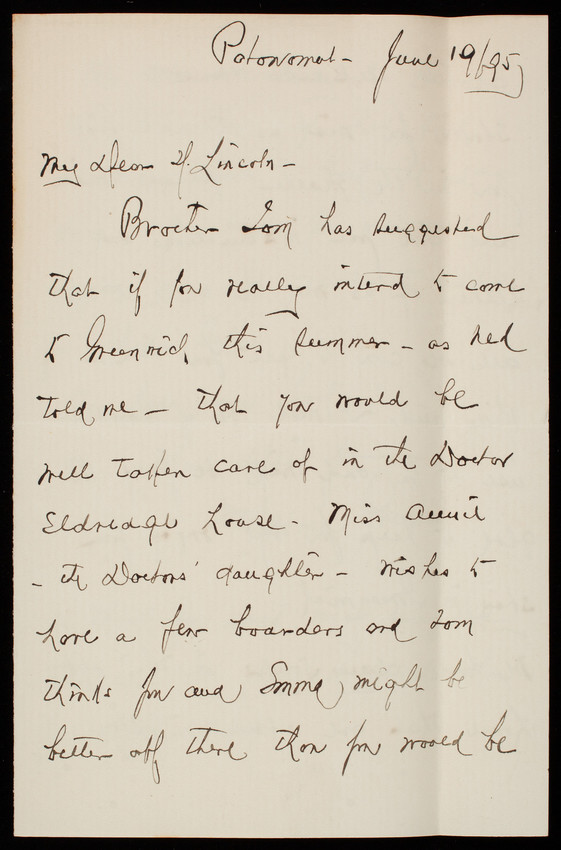 Potowomut - June 19/95
My Dear M. Lincoln -
Brother Tom has suggested
that if you really intend to come
to Greenwich this summer - as Ned
told me - that you would be
well taken care of in the Doctor
Eldredge house - Miss Annie
- the Doctors' daughter - wishes to
have a few boarders and Tom
thinks you and Emma might be
better off there than you would be